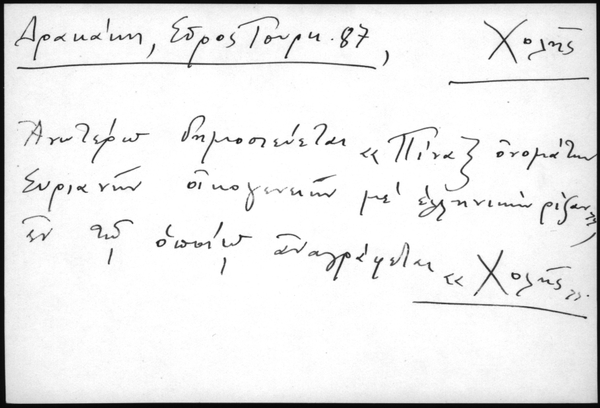 Δρακάκη, Σύρος Τουρκ. 87, Χολῆς
Ἀνωτέρω δημοσιεύεται «Πίναξ ὀνομάτων
Συριανῶν οἰκογενειῶν μέ ἑλληνικήν ρίζαν»,
ἐν τῷ ὁποίῳ ἀναγράφεται «Χολῆς».